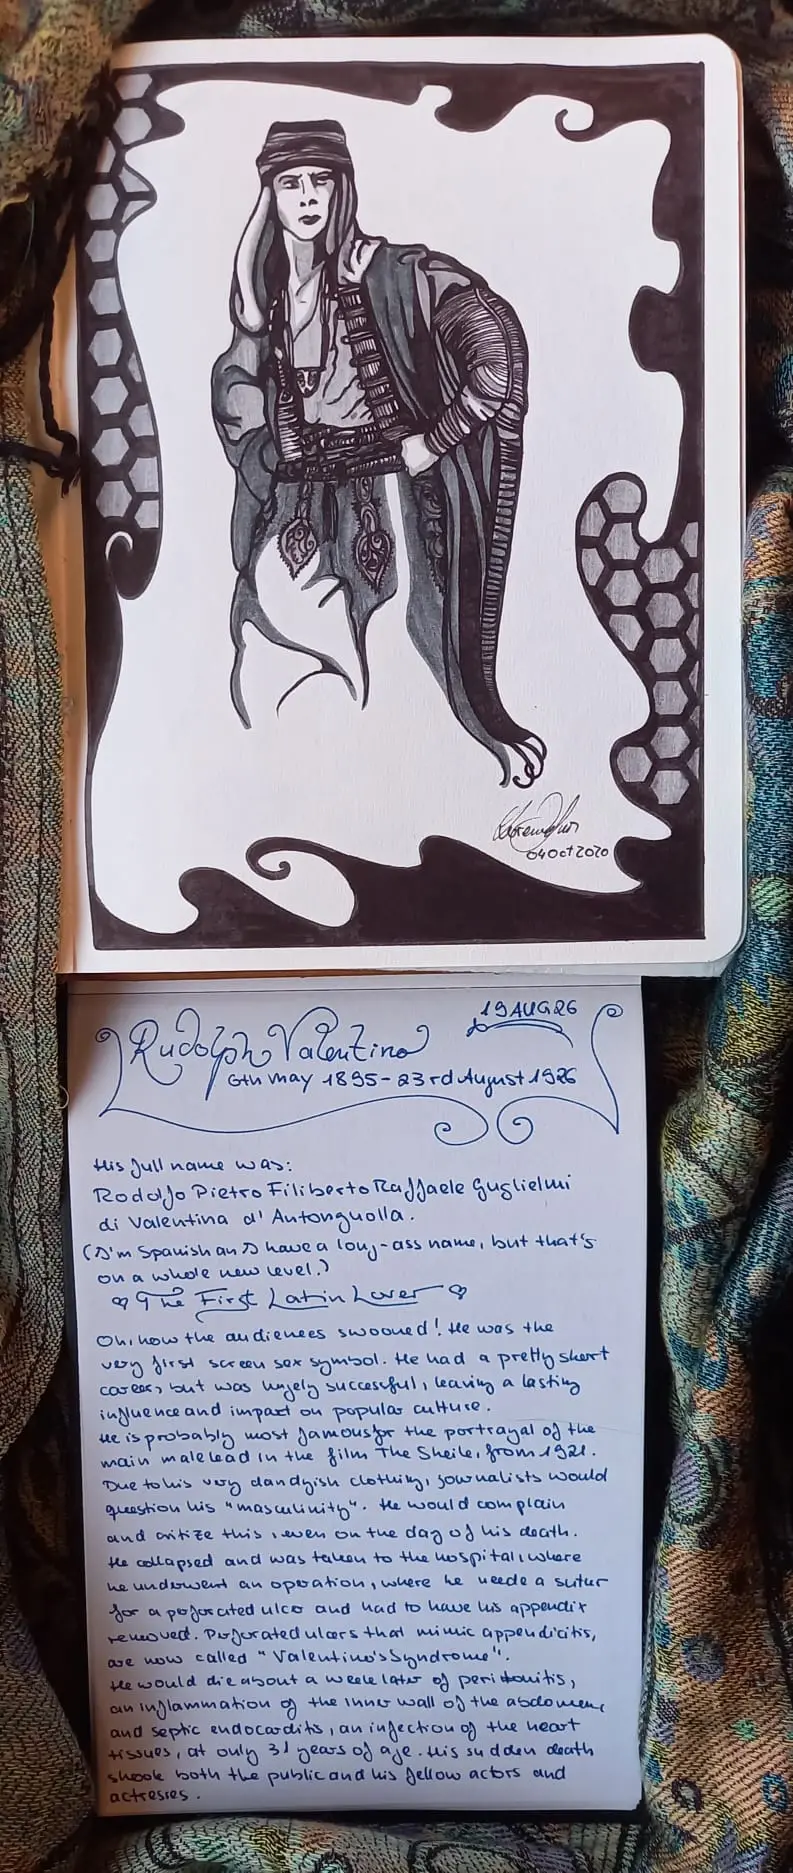 04 Oct 2020
19 AUG 26
Rudolph Valentino
6th May 1895 - 23rd August 1926
His full name was:
Rodolfo Pietro Filiberto Raffaele Guglielmi
di Valentina d'Antonguolla.
(I'm Spanish an I have a long-ass name, but that's
on a whole new level.)
♡ The First Latin Lover ♡
Oh, how the audiences swooned! He was the
very first screen sex symbol. He had a pretty short
career, but was hugely succesful, leaving a lasting
influence and impact on popular culture.
He is probably most famous for the portrayal of the
main male lead in the film The Sheik, from 1921.
Due to his very dandyish clothing, journalists would
question his "masculinity". He would complain
and critize this, even on the day of his death.
He collapsed and was taken to the hospital, where
he underwent an operation, where he neede a sutur
for a perforated ulcer and had to have his appendix
removed. Perforated ulcers that mimic appendicitis,
are now called "Valentino's Syndrome".
He would die about a week later of peritonitis,
an inflammation of the inner wall of the abdomen,
and septic endocarditis, an infection of the heart
tissues, at only 31 years of age. His sudden death
shook both the public and his fellow actors and
actresses.